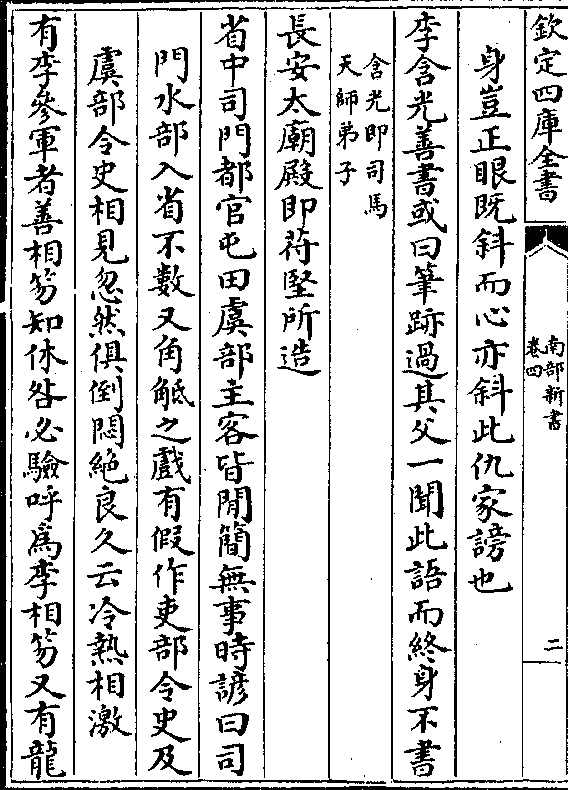 欽定四庫全書
南部新書
卷四
二
身豈正眼既斜而心亦斜此仇家謗也
李含光善書或曰筆跡過其父一聞此語而終身不書
含光即司馬
天師弟子
長安太廟殿即苻堅所造
省中司門都官屯田虞部主客皆閒簡無事時諺曰司
門水部入省不數又角觝之戲有假作吏部令史及
虞部令史相見忽然俱倒悶絶良久云冷熱相激
有李參軍者善相笏知休咎必驗呼爲李相笏又有龍